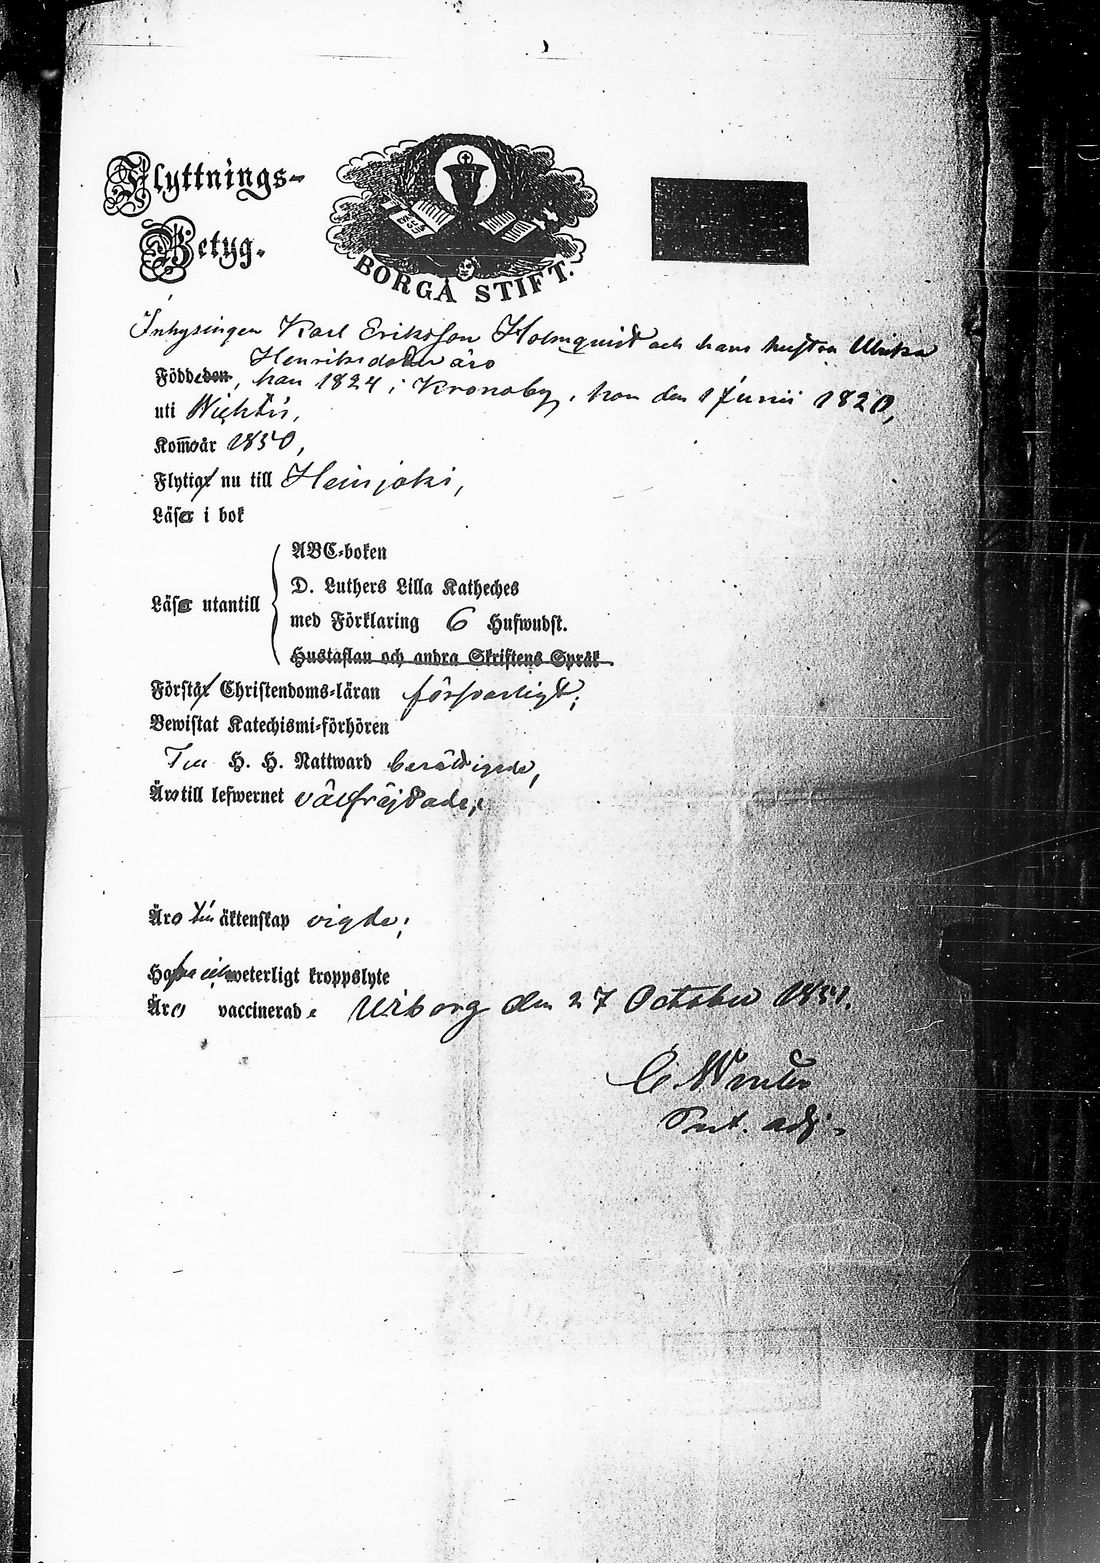 Flyttnings-
Betyg.
BORGÅ STIFT.
Inhysingen Karl Eriksson Holmquist och hans hustru Ulrika
Henriksdotter äro
Födde den, han 1824 i Kronoby, hon den 1 Junii 1820,
uti Wichtis,
Komo år 1850,
Flytta nu till Heinjoki,
Läsa i bok
Läsa utantill
ABC-boken
D. Luthers Lilla Katheches
med Förklaring 6 Hufwudst.
Hustaflan och andra Skriftens Språk
Förstå Christendoms-läran försvarligt;
Bewistat Katechismi-förhören
Till H. H. Nattward berättigade,
Äro till lefwernet välfräjdade;
Äro till äktenskap vigde;
Hafva ej weterligt kroppslyte
Äro vaccinerade Wiborg den 27 October 1851.
adj.